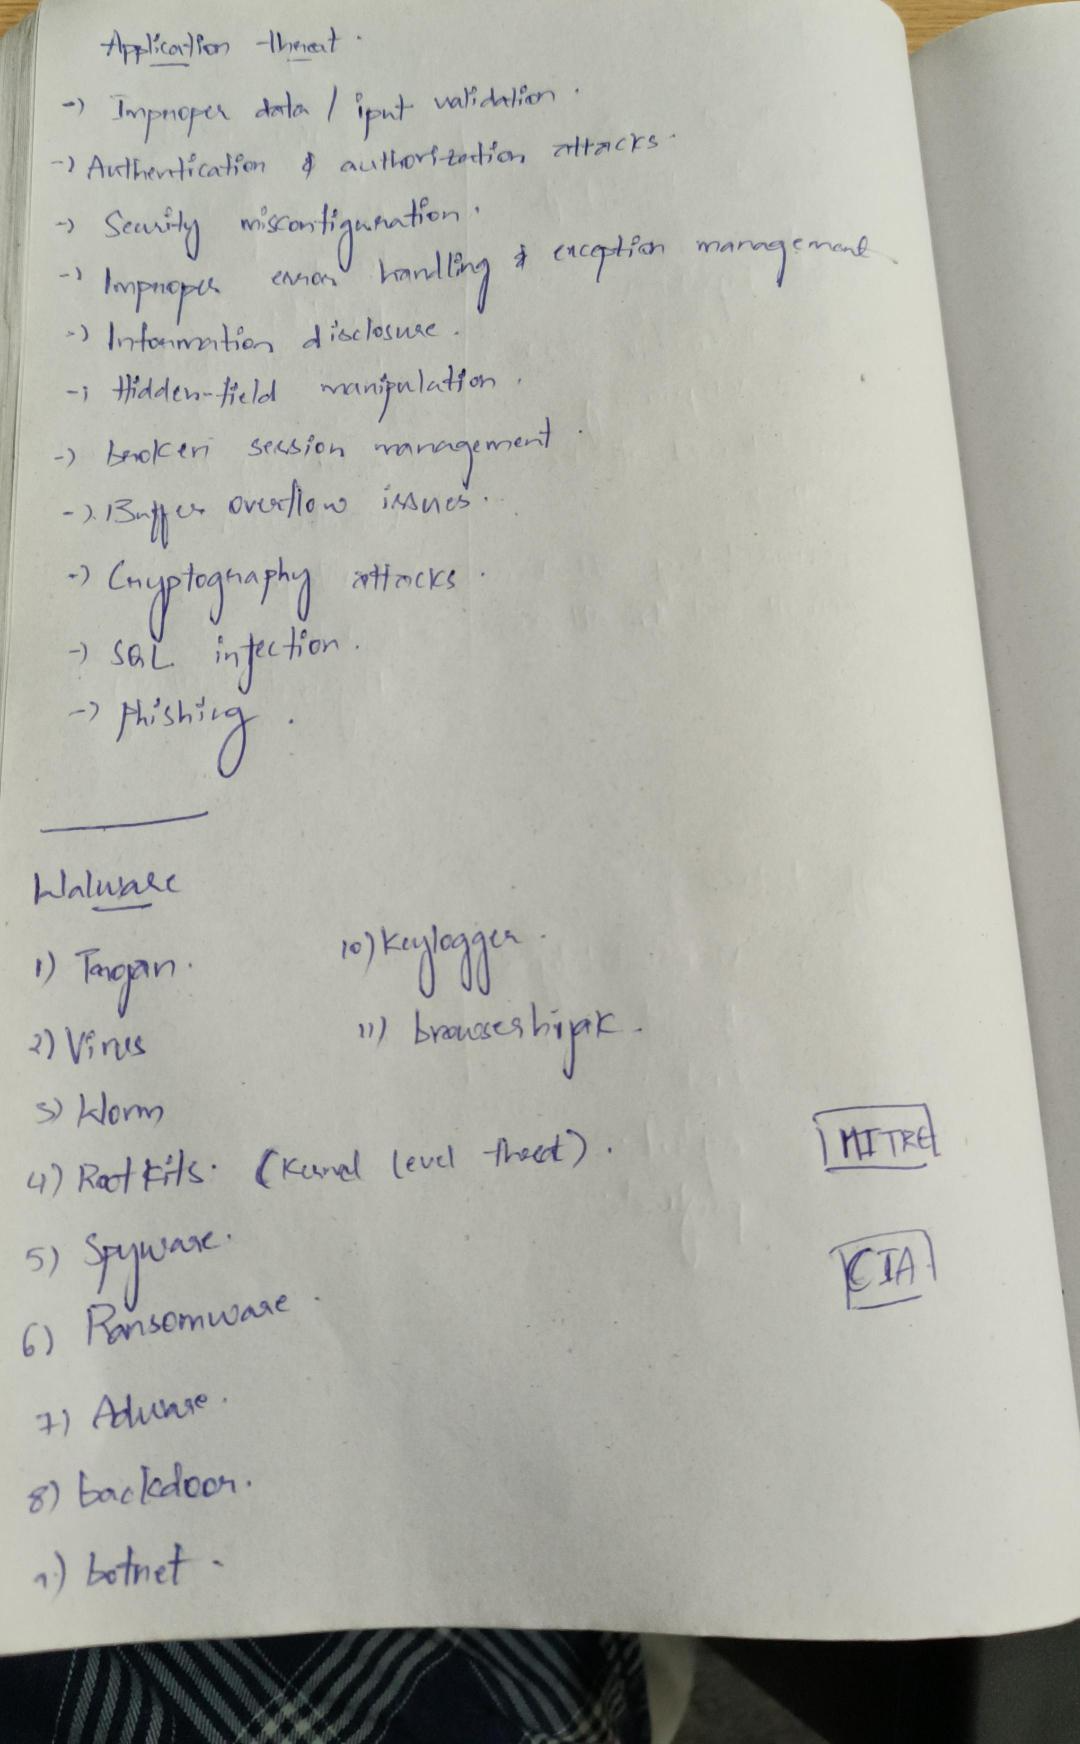 Application threat.
-> Improper data / iput validation.
-> Authentication & authorization attacks.
-> Security misconfiguration.
-> Improper error handling & exception management
-> Information disclosure.
-> Hidden-field manipulation.
-> broken session management.
-> Buffer overflow issues.
-> Cryptography attacks.
-> SQL injection.
-> Phishing.
Walware
1) Trogan.
2) Virus
3) Worm
4) Rootkits. (Kernel level threat).
5) Spyware.
6) Ransomware.
7) Adware.
8) backdoor.
9) botnet.
10) Keylogger.
11) browserhijak.
MITRE
CIA